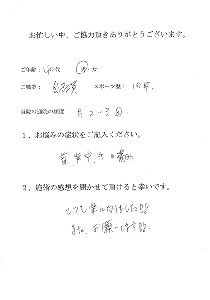 お忙しい中、ご協力頂きありがとうございます。
ご年齢：40代 男・女
ご職業： 会社員 スポーツ歴： 10年
当院の通院の頻度 月2～3回
1、お悩みの症状をご記入ください。
首 背中
2、施術の感想を聞かせて頂けると幸いです。
いつも楽になりました!!
また、お願いします!!